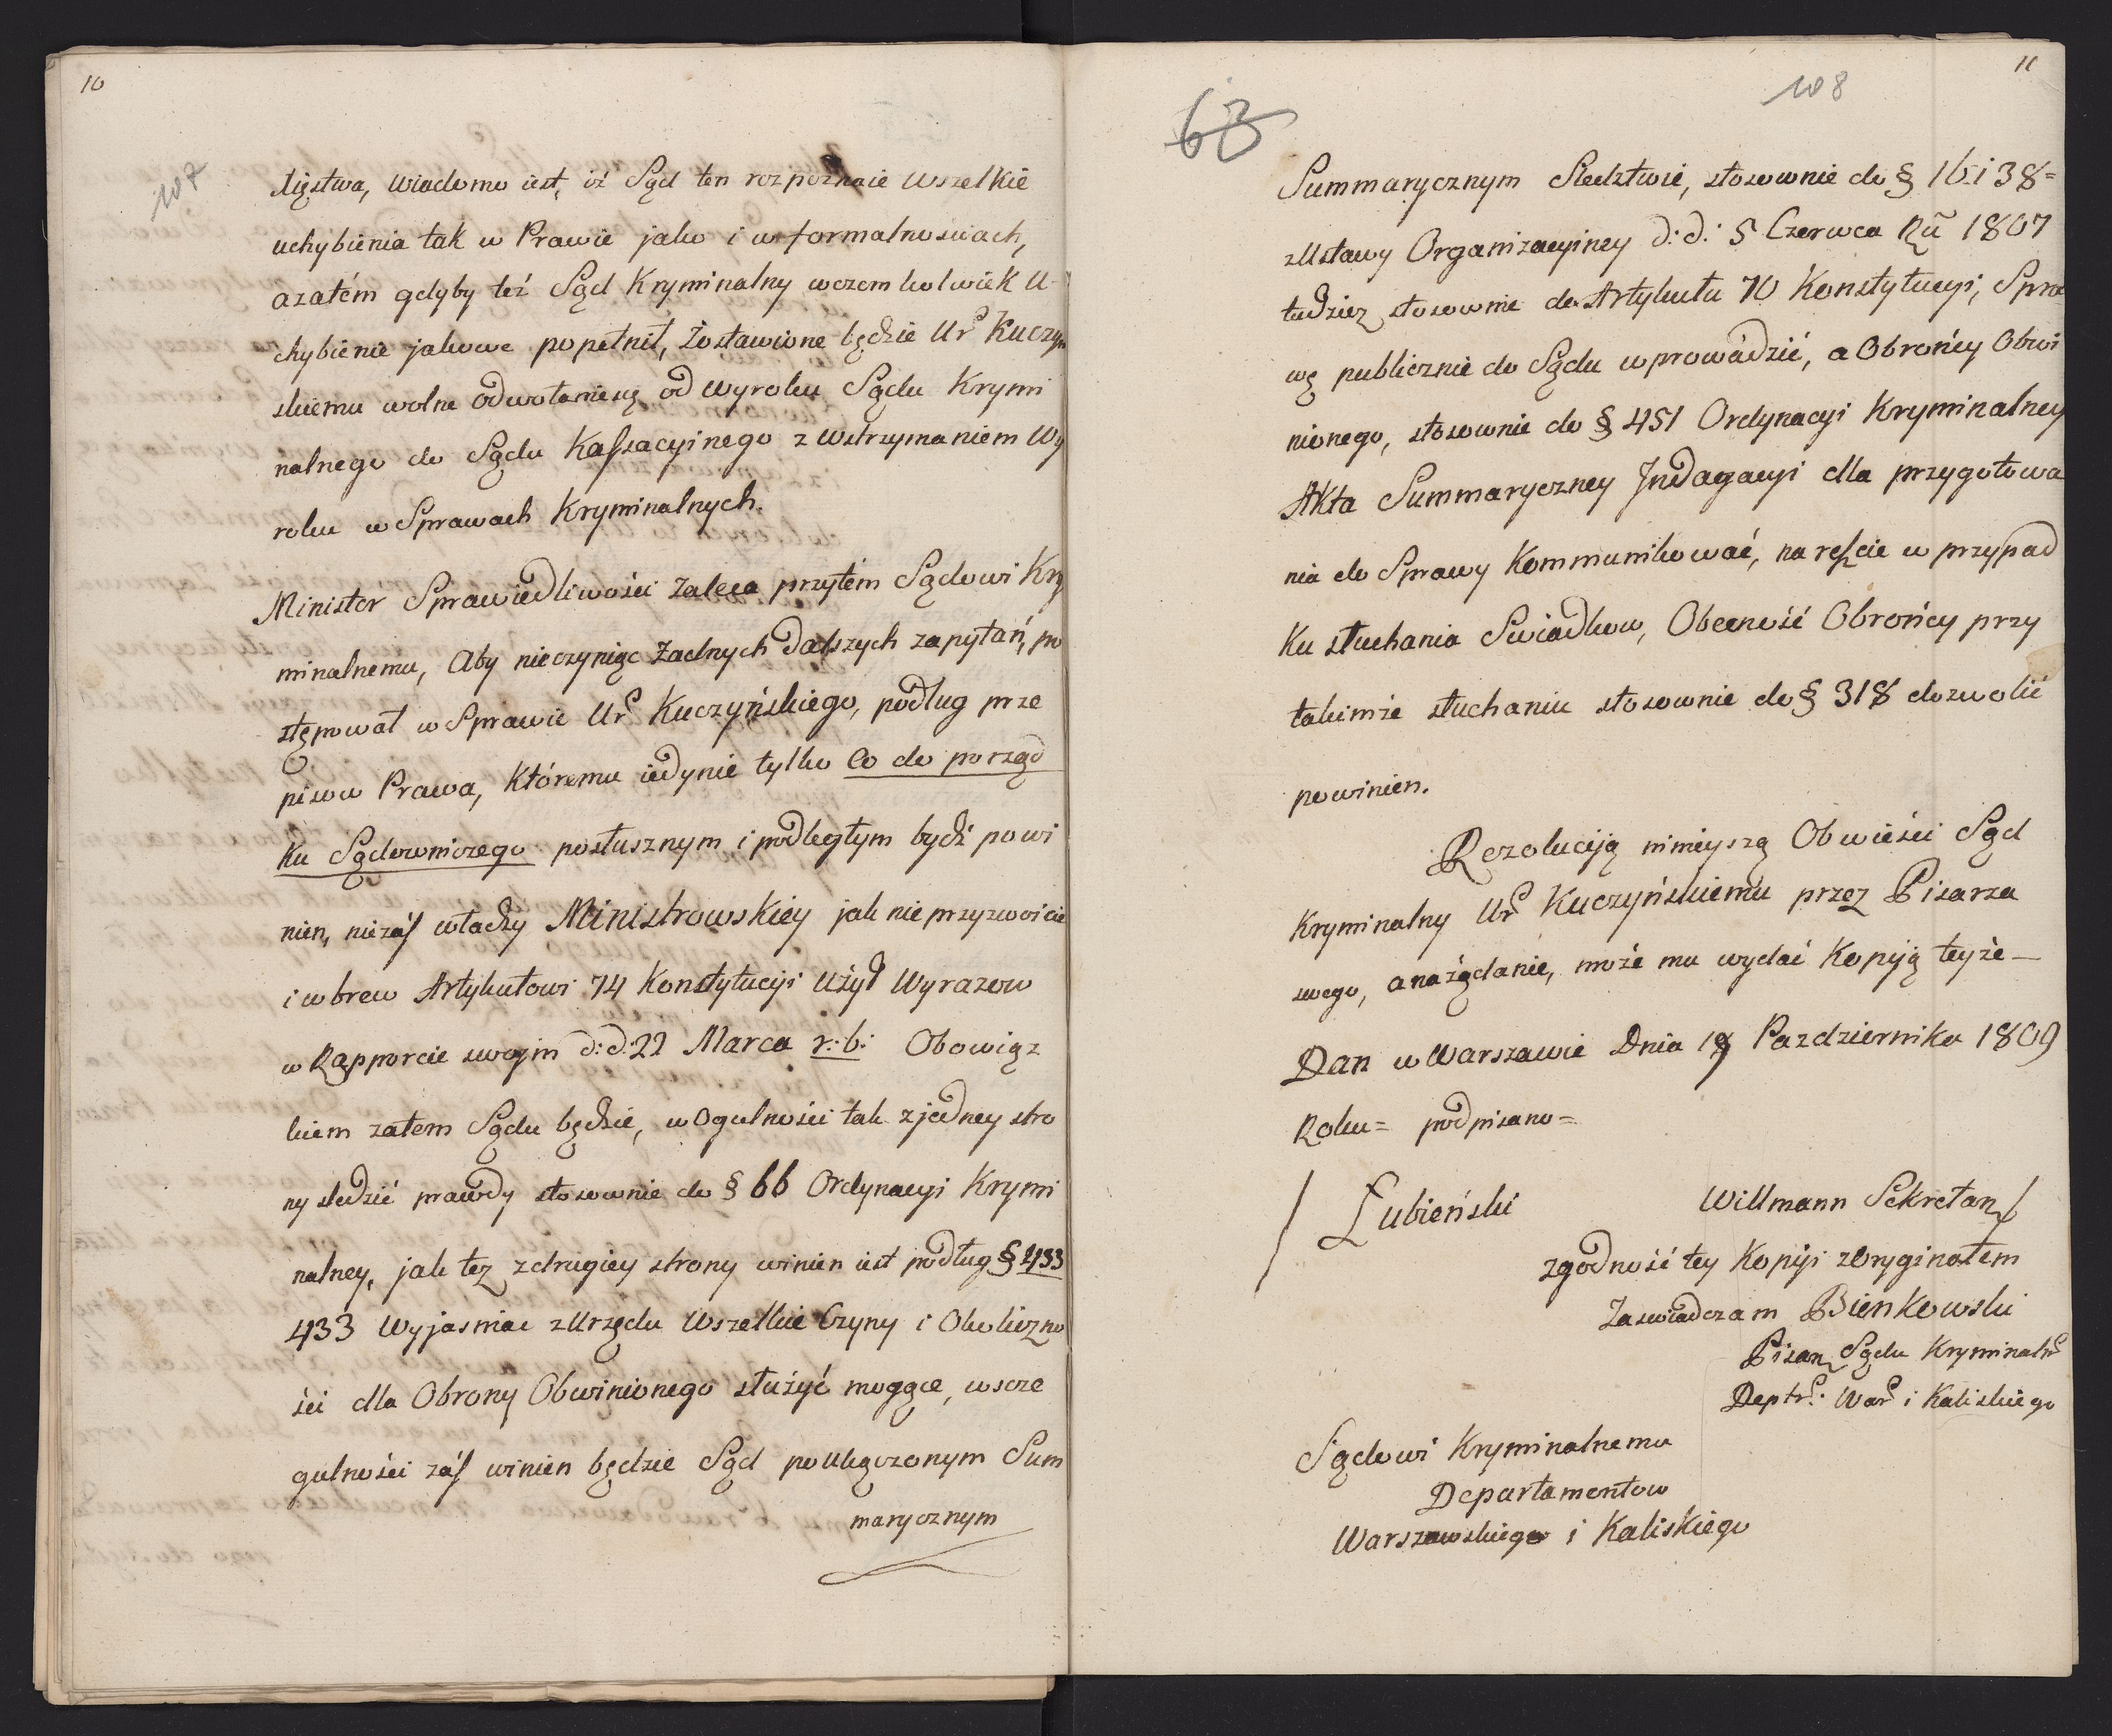 10
107
Xięstwa, wiadomo iest, iż Sąd ten rozpoznaie wszelkie
uchybienia tak w Prawie jako i w formalnościach,
azatém gdyby też Sąd Kryminalny wczemkolwiek u-
chybienie jakowe popełnił, zostawione będzie Ur Kuczyń
skiemu wolne odwołaniesię od wyroku Sądu Krymi
nalnego do Sądu Kassacyinego z wstrzymaniem Wy
roku w Sprawach Kryminalnych.
Minister Sprawiedliwości zaleca przytém Sądowi Kry
minalnemu, Aby nieczyniąc żadnych dalszych zapytań, po
stępował w Sprawie Ur Kuczyńskiego, podług prze
pisow Prawa, Któremu iedynie tylko Co do porząd
ku Sądowniczego posłusznym i podległym bydź powi
nien, niezaś władzy Ministrowskiey jak nieprzyzwoicie
i wbrew Artykułowi 74 Konstytucyi użył Wyrazow
w Rapporcie swojm d: d: 22 Marca r: b: Obowiąz
kiem zatem Sądu będzie, w Ogulności tak z jedney stro
ny sledzić prawdy stosownie do § 66 Ordynacyi Krymi
nalney, jak tez z drugiey strony winien iest podług § 433
433 Wyjasniac z Urzędu Wszelkie Czyny i Okoliczno
ści dla Obrony Obwinionego służyć mogące, wscze
gulności zaś winien będzie Sąd po Ukączonym Sum
marycznym
11
108
63
Summarycznym Sledztwie, stosownie do § 16 i 38=
z Ustawy Organizacyiney d: d: 5 Czerwca Ru 1807
tudziez stosownie do Artykułu 70 Konstytucyi, Spra
wę publicznie do Sądu wprowadzić, a Obrońcy Obwi
nionego, stosownie do § 451 Ordynacyi Kryminalney
Akta Summaryczney Jndagacyi dla przygotowa
nia do Sprawy Kommunikować, na reście w przypad
ku słuchania Swiadkow, Obecność Obrońcy przy
takimże słuchaniu stosownie do § 318 dozwolić
powinien.
Rezolucyją ninieyszą Obwieści Sąd
Kryminalny Ur Kuczyńskiemu przez Pisarza
swego, a na żądanie, może mu wydać Kopiją teyże—
Dan w Warszawie Dnia 19 Pazdziernika 1809
Roku= podpisano=
Łubieński Willmann Sekretarz
zgodność tey Kopiji z Oryginałem
Zaswiadczam Bienkowski
Pisarz Sądu Kryminaln
Deptr: War i Kaliskiego
Sądowi Kryminalnemu
Departamentow
Warszawskiego i Kaliskiego